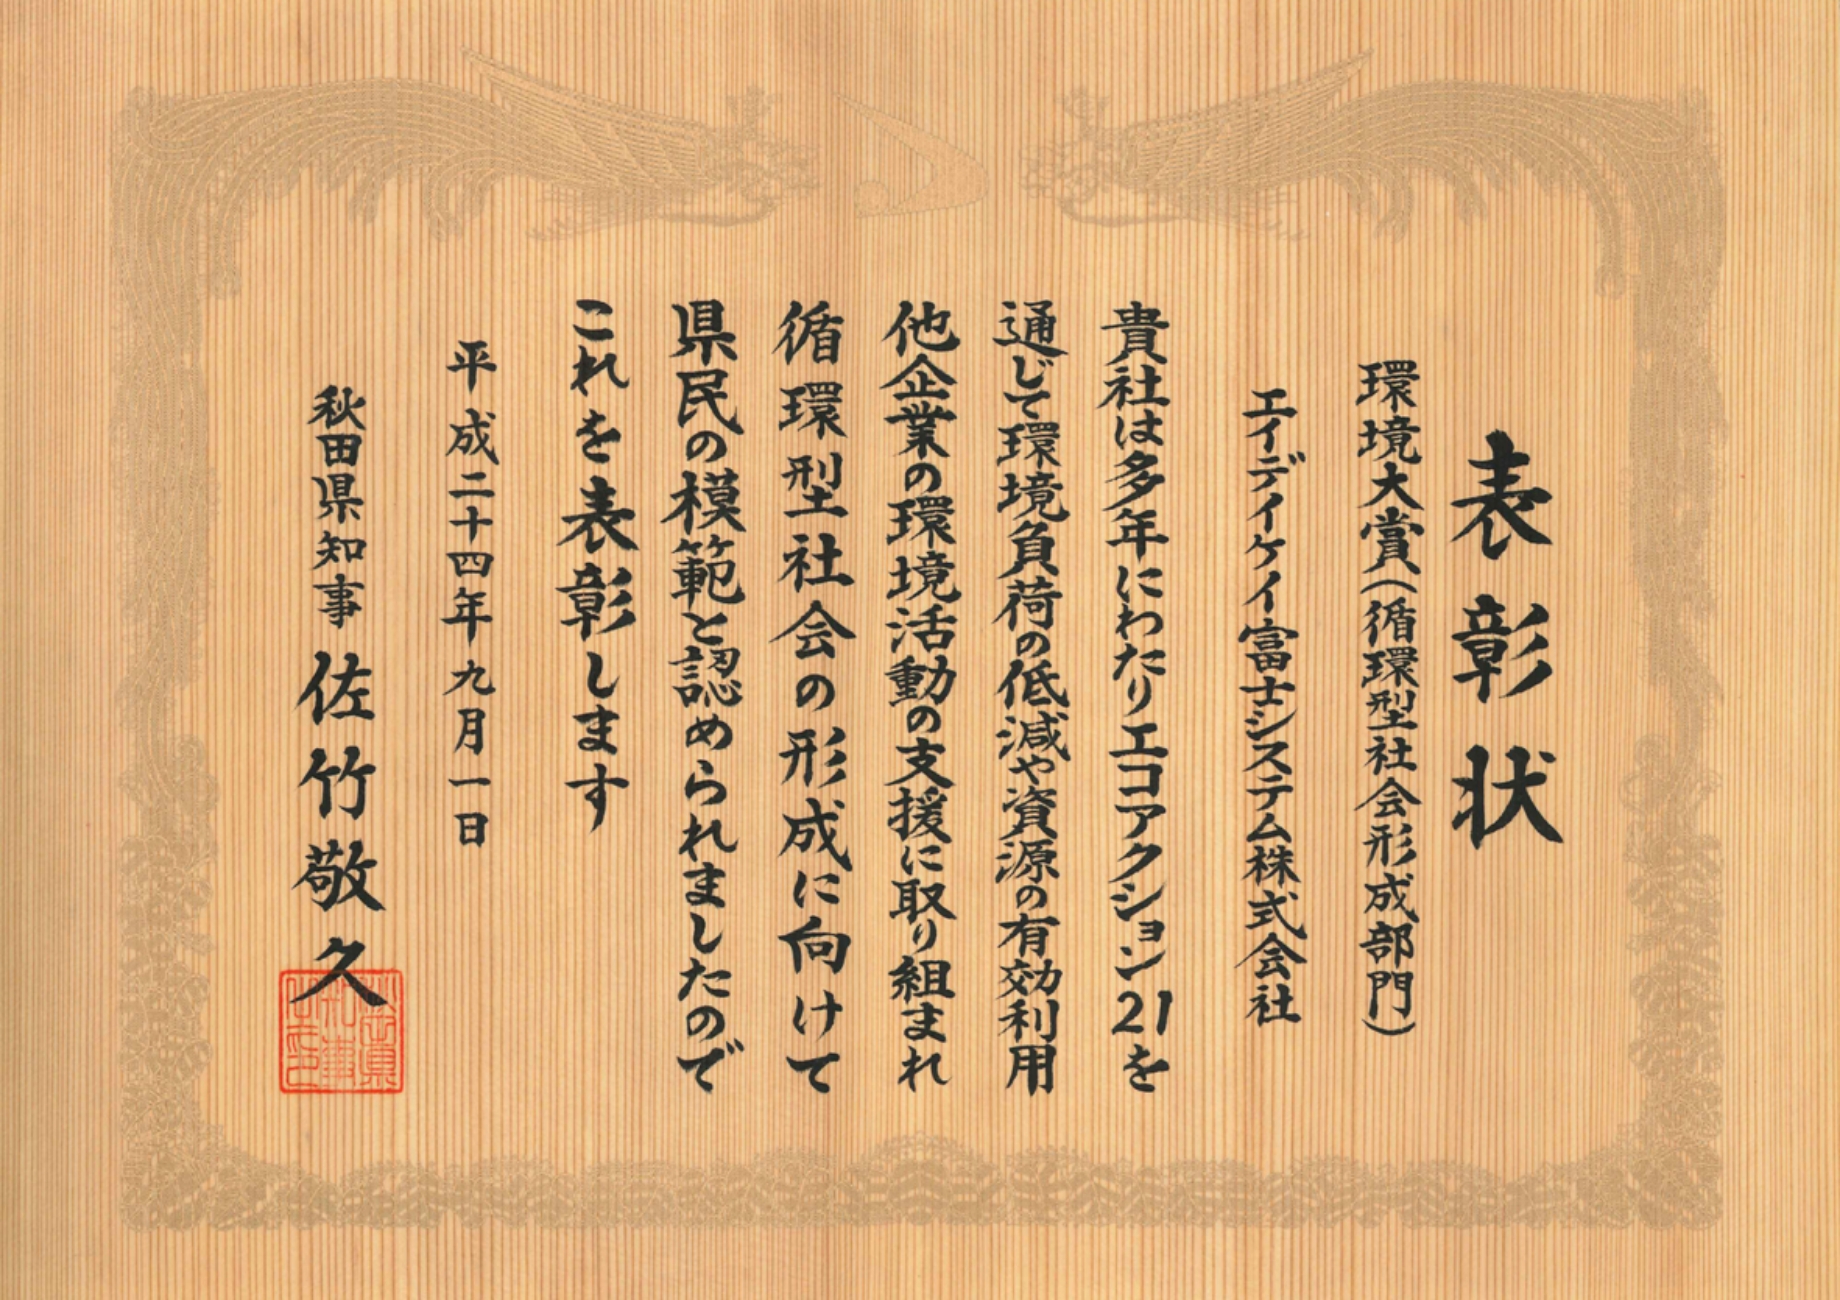 表彰状
環境大賞（循環型社会形成部門）
エイデイケイ富士システム株式会社
貴社は多年にわたりエコアクション21を
通じて環境負荷の低減や資源の有効利用
他企業の環境活動の支援に取り組まれ
循環型社会の形成に向けて
県民の模範と認められましたので
これを表彰します
平成二十四年九月一日
秋田県知事 佐竹敬久
秋田県知事之印